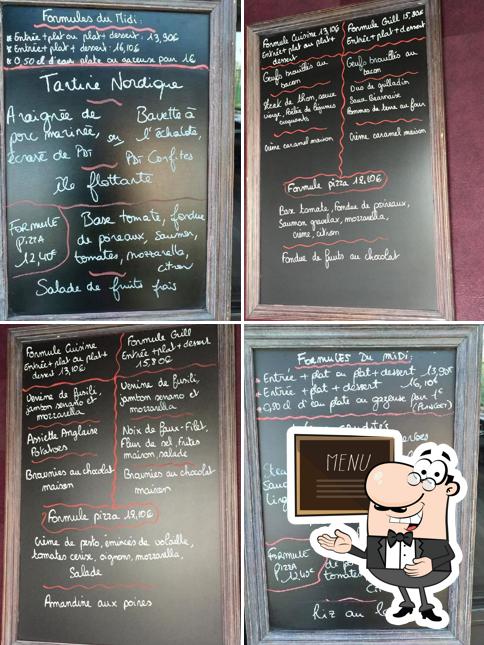 Formules du Midi:
* Entrée + plat ou plat + dessert : 13,90€
* Entrée + plat + dessert : 16,10€
* 0,50 cl d'eau plate ou gazeuse pour 1€
Tartare Nordique
Araignée de porc marinée, écrasé de PDT
ou
Bavette à l'échalote, PDT Confites
île flottante
FORMULE PIZZA 12,40€
Base tomate, fondue
de poireaux, saumon,
tomates, mozzarella,
citron
Salade de fruits frais
Formule Cuisine 13,10€
Entrée + plat ou plat +
dessert
Oeufs brouillés au
bacon
Steak de thon, sauce
vierge, Poêlée de légumes
croquants
Crème caramel maison
Formule Grill 15,80€
Entrée + plat + dessert
Oeufs brouillés au
bacon
Duo de grilladin
Sauce Béarnaise
Pommes de terre au four
Crème caramel maison
Formule pizza 12,10€
Base tomate, Fondue de poireaux,
Saumon gravelax, mozzarella,
crème, citron
Fondue de fruits au chocolat
Formule Cuisine
Entrée + plat ou plat +
dessert 13,10€
Verrine de fusili,
jambon serrano et
mozzarella
Assiette Anglaise
Potatoes
Brownies au chocolat
maison
Formule Grill
Entrée + plat + dessert
15,80€
Verrine de fusili,
jambon serrano et
mozzarella
Noix de faux-Filet,
Fleur de sel, frites
maison, salade
Brownies au chocolat
maison
Formule pizza 12,10€
Crème de pesto, émincés de volaille,
tomates cerise, oignons, mozzarella,
Salade
Amandine aux poires
FORMULES DU MIDI:
* Entrée + plat ou plat + dessert 13,90€
* Entrée + plat + dessert 16,10€
* 0,50 cl d'eau plate ou gazeuse pour 1€
MENU
FORMULE
PIZZA
12,40€
Riz au